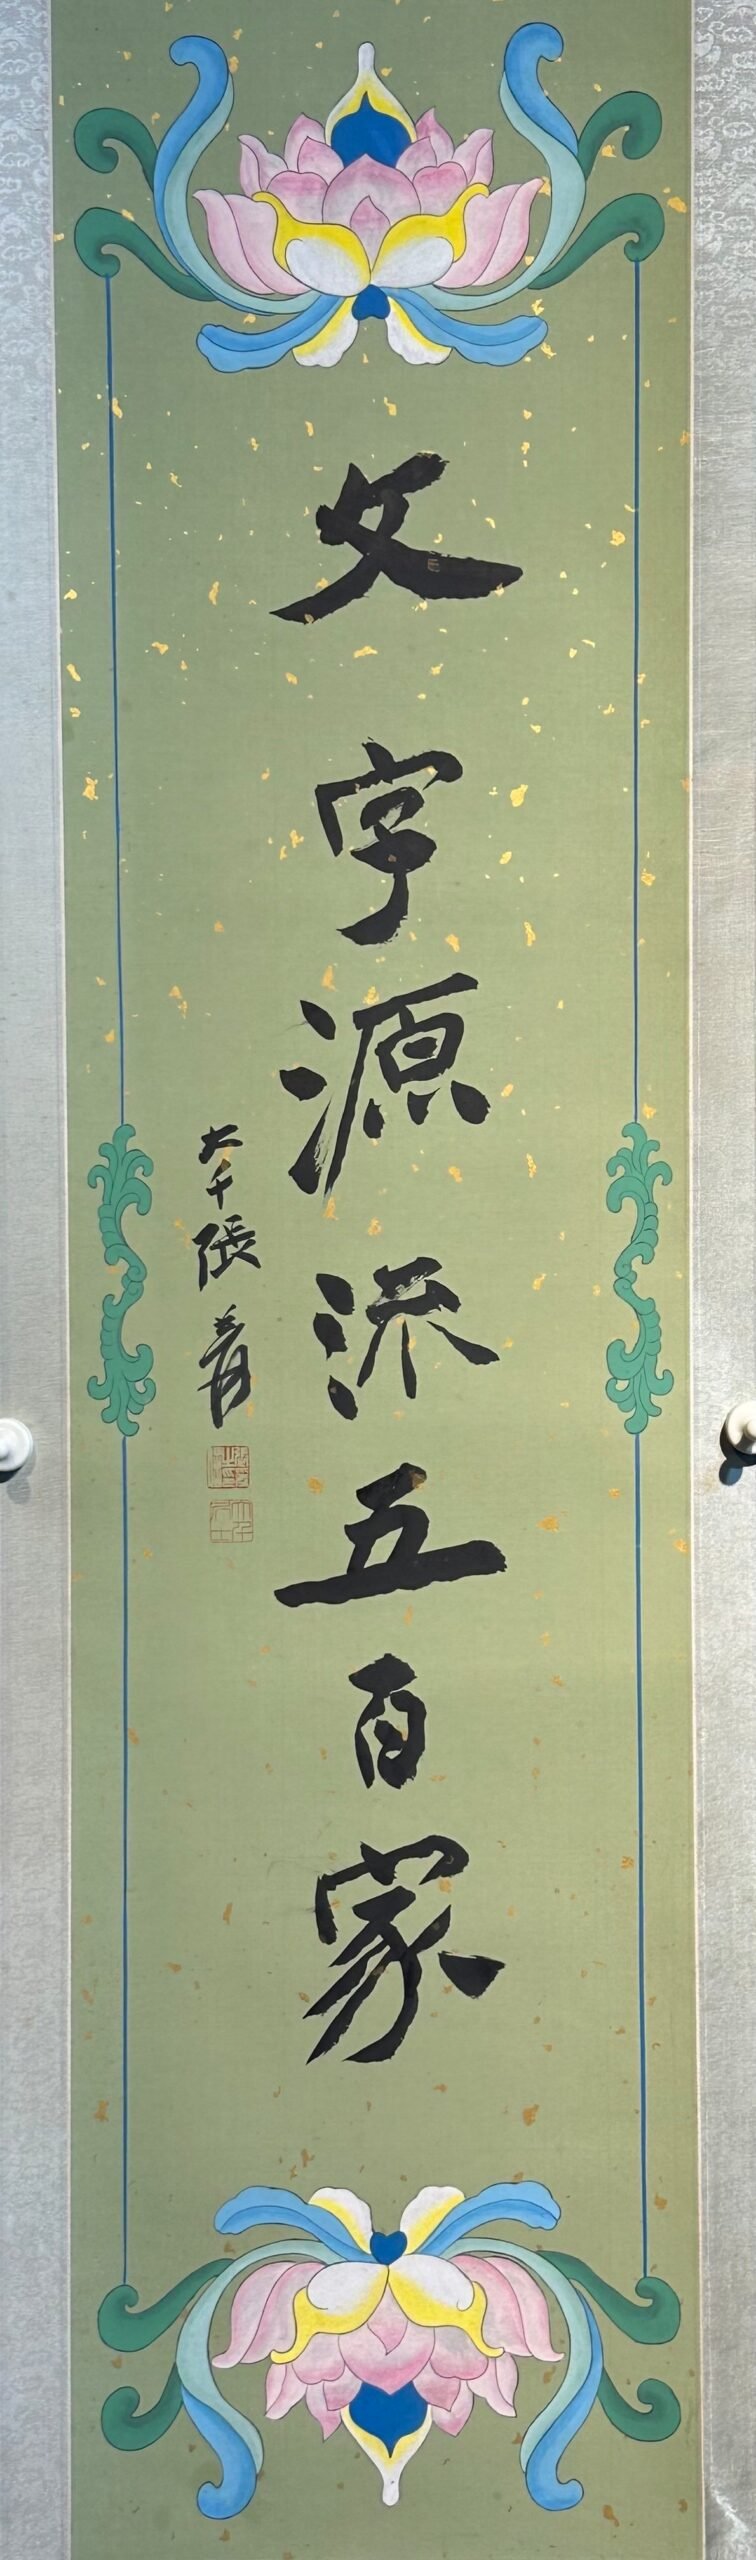 文字源流五百家
大千張爰